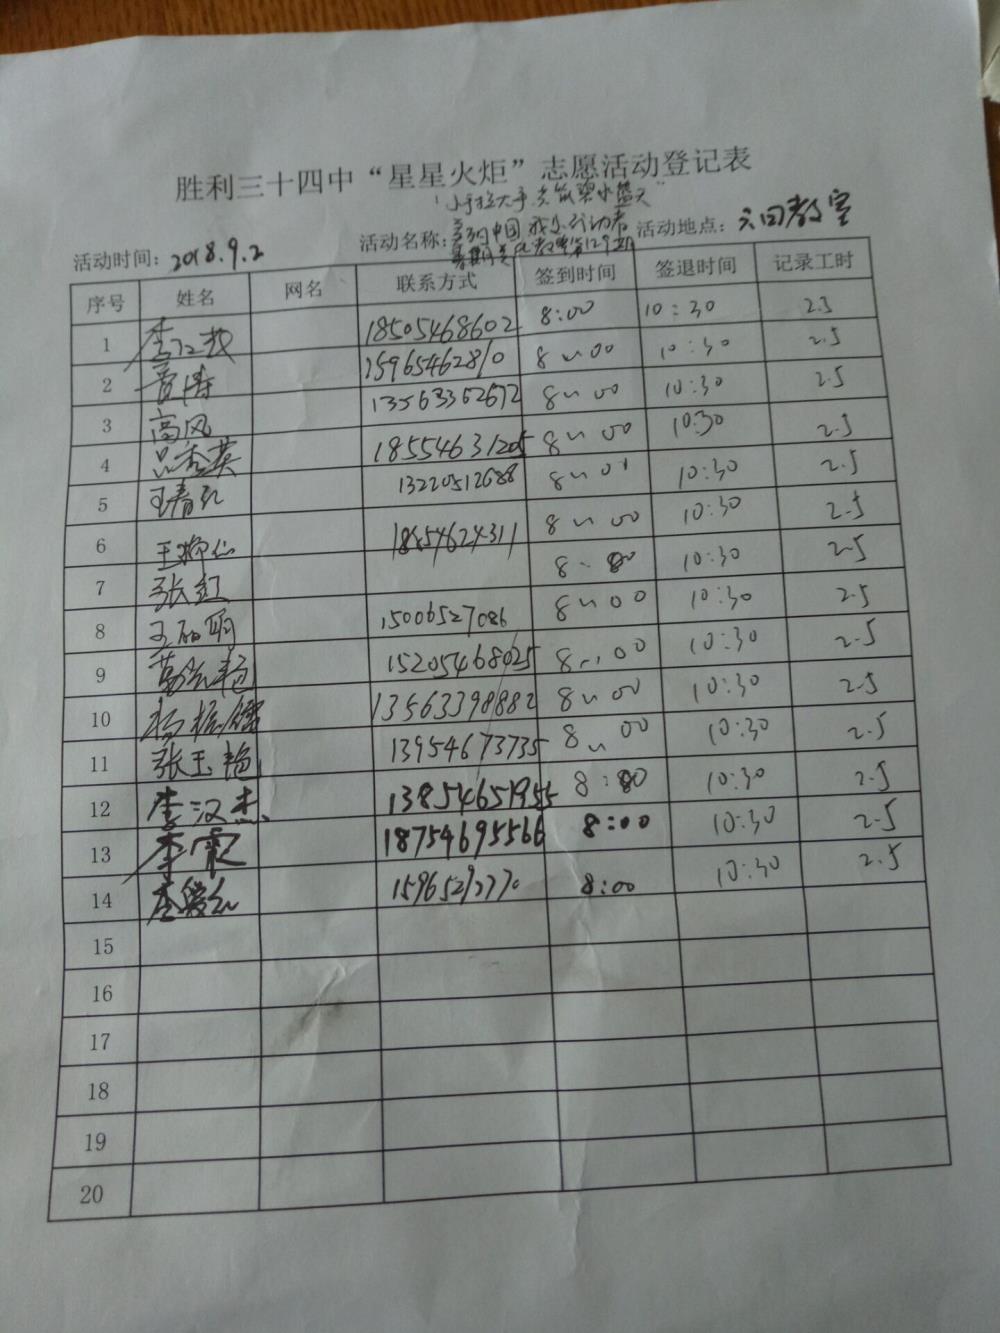 胜利三十四中“星星火炬”志愿活动登记表
“小手拉大手 共筑碧水蓝天”
活动时间：2018.9.2 活动名称：美丽中国 我是行动者 活动地点：六田教室
序号 姓名 网名 联系方式 签到时间 签退时间 记录工时
1 18505468602 8:00 10:30 2.5
2 15965462810 8:00 10:30 2.5
3 高风 13563362672 8:00 10:30 2.5
4 吕秀英 18554631205 8:00 10:30 2.5
5 王春 13220512688 8:00 10:30 2.5
6 王 18854624311 8:00 10:30 2.5
7 张红 8:00 10:30 2.5
8 王丽娟 15006527086 8:00 10:30 2.5
9 15205468025 8:00 10:30 2.5
10 杨 13563398882 8:00 10:30 2.5
11 张玉艳 13954673735 8:00 10:30 2.5
12 李汉杰 13854651955 8:00 10:30 2.5
13 李霞 18754695566 8:00 10:30 2.5
14 李爱红 8:00 10:30 2.5
15
16
17
18
19
20